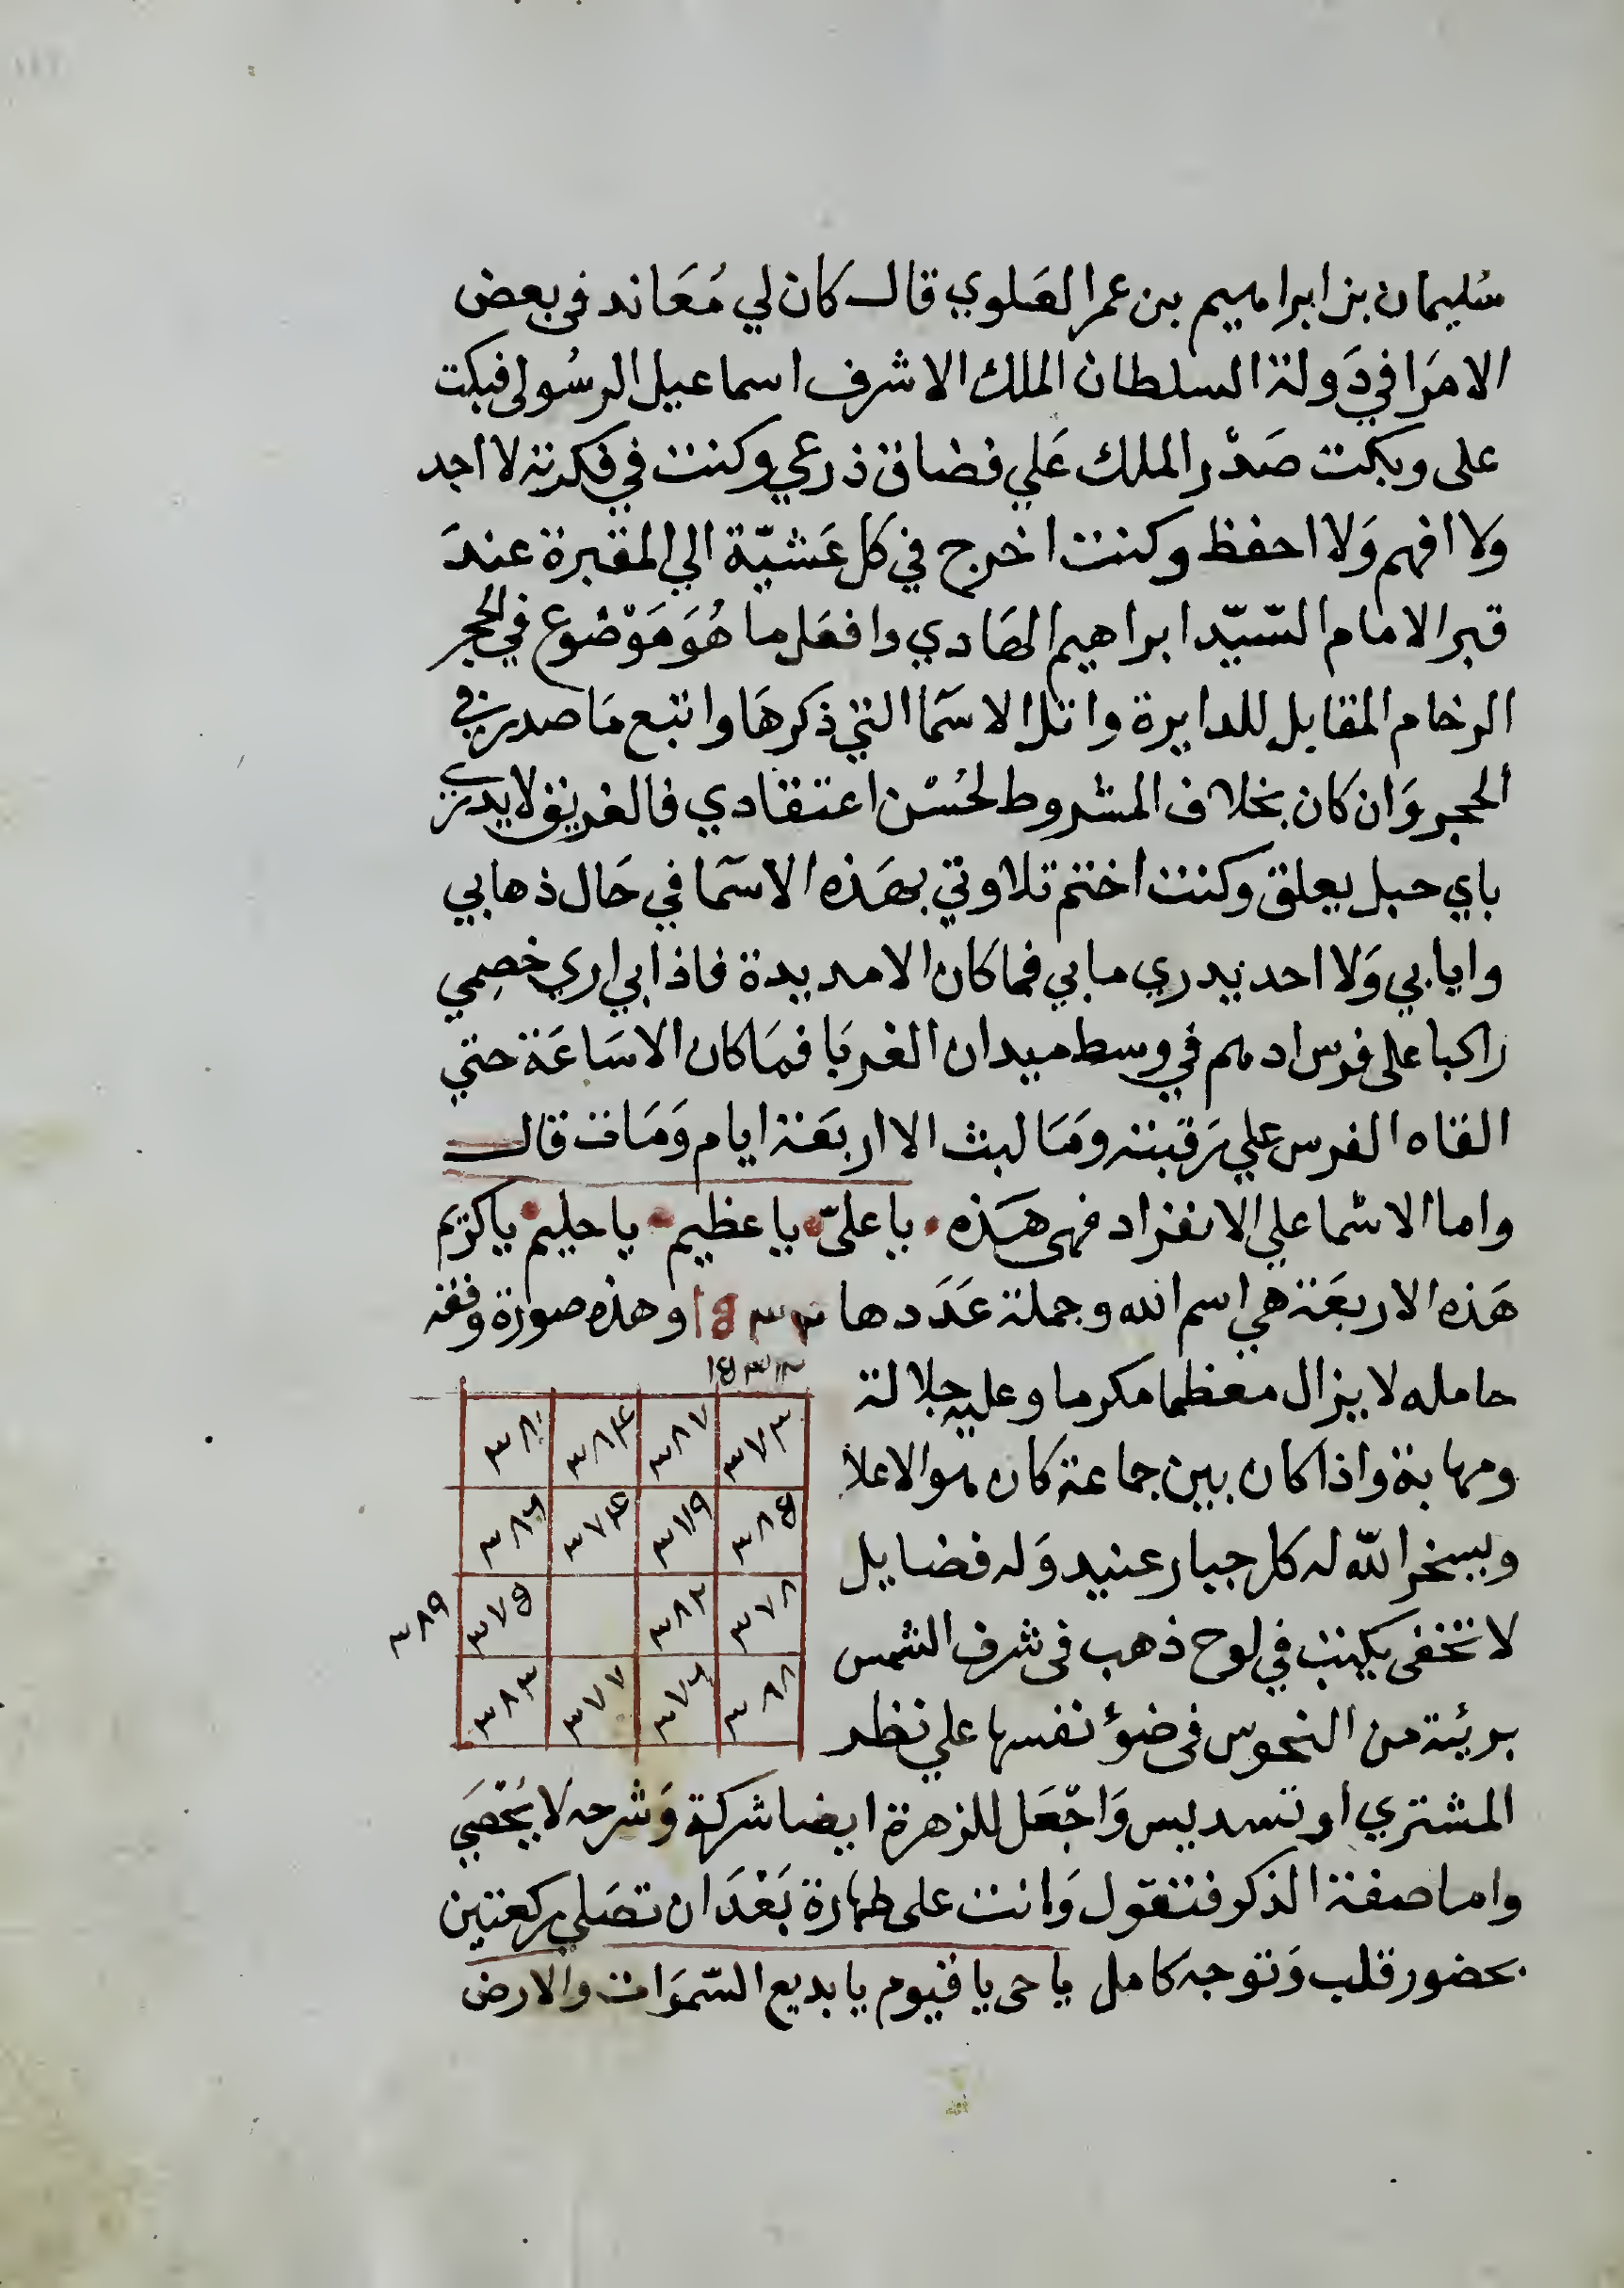 سُليمان بن ابراهيم بن عمر العَلوي قال كان لي مُعَاند في بعض
الامرَا في دَولة السلطان الملك الاشرف اسماعيل الرسُولى فبكت
على وبكت صَدْر الملك عَلي فضاق ذرعي وكنت في فكرته لا اجد
وَلا افهم وَلا احفظ وكنت اخرج في كل عَشيّة الي المقبرة عندَ
قبر الامام السّيّد ابراهيم الهَادي وافعَل ما هُوَ مَوْضوع في الحجر
الرخام المقابل للدايرة واتلا الاسمَا التي ذكرهَا واتبع مَا صدر في
الحجر وَان كان بخلاف المشروط لحُسْن اعتقادي فالغريق لا يدري
باي حبل يعلق وكنت اختم تلاوتي بهَذه الاسمَا في حَال ذهابي
وايابي وَلا احد يدري ما بي فما كان الا مديدة فاذا بي اري خصِمي
راكبا على فرس ادهم في وسط ميدان الغربَا فمَا كان الا سَاعَة حتي
القاه الفرس علي رَقبته ومَا لبث الا اربعَة ايام وَمَات قال
واما الاسْما علي الانفراد فهى هَذه يا علىّ يا عظيم يا حليم يا كريم
هَذه الاربعَة هي اسم الله وجملة عَدَدها و هذه صورة وفقه
١٥٣٢
حامله لا يزال معظما مكرما وعليه جلالة
ومهابة واذا كان بين جماعة كان هو الاعلا
ويسخر الله له كل جبار عنيد وَله فضايل
لا تخفى يكتب في لوح ذهب فى شرف الشمس
بريئة من النحوس فى ضوؤ نفسها علي نظر
٣٨٠ ٣٨٤ ٣٨٧ ٣٧٣
٣٨٦ ٣٧٤ ٣٧٩ ٣٨٥
٣٧٥ ٣٨٢ ٣٧٨
٣٨٣ ٣٧٧ ٣٧٦ ٣٨٨
٣٨٩
المشتري او تسديس وَاجْعَل للزهرة ايضا شركة وَشرحه لا يُحْصَي
واما صفة الذكر فتقول وَانت على طهارة بَعْدَ ان تصَلي ركعتين
بحضور قلب وَتوجه كامل يا حى يا قيوم يا بديع السّموَات والارض